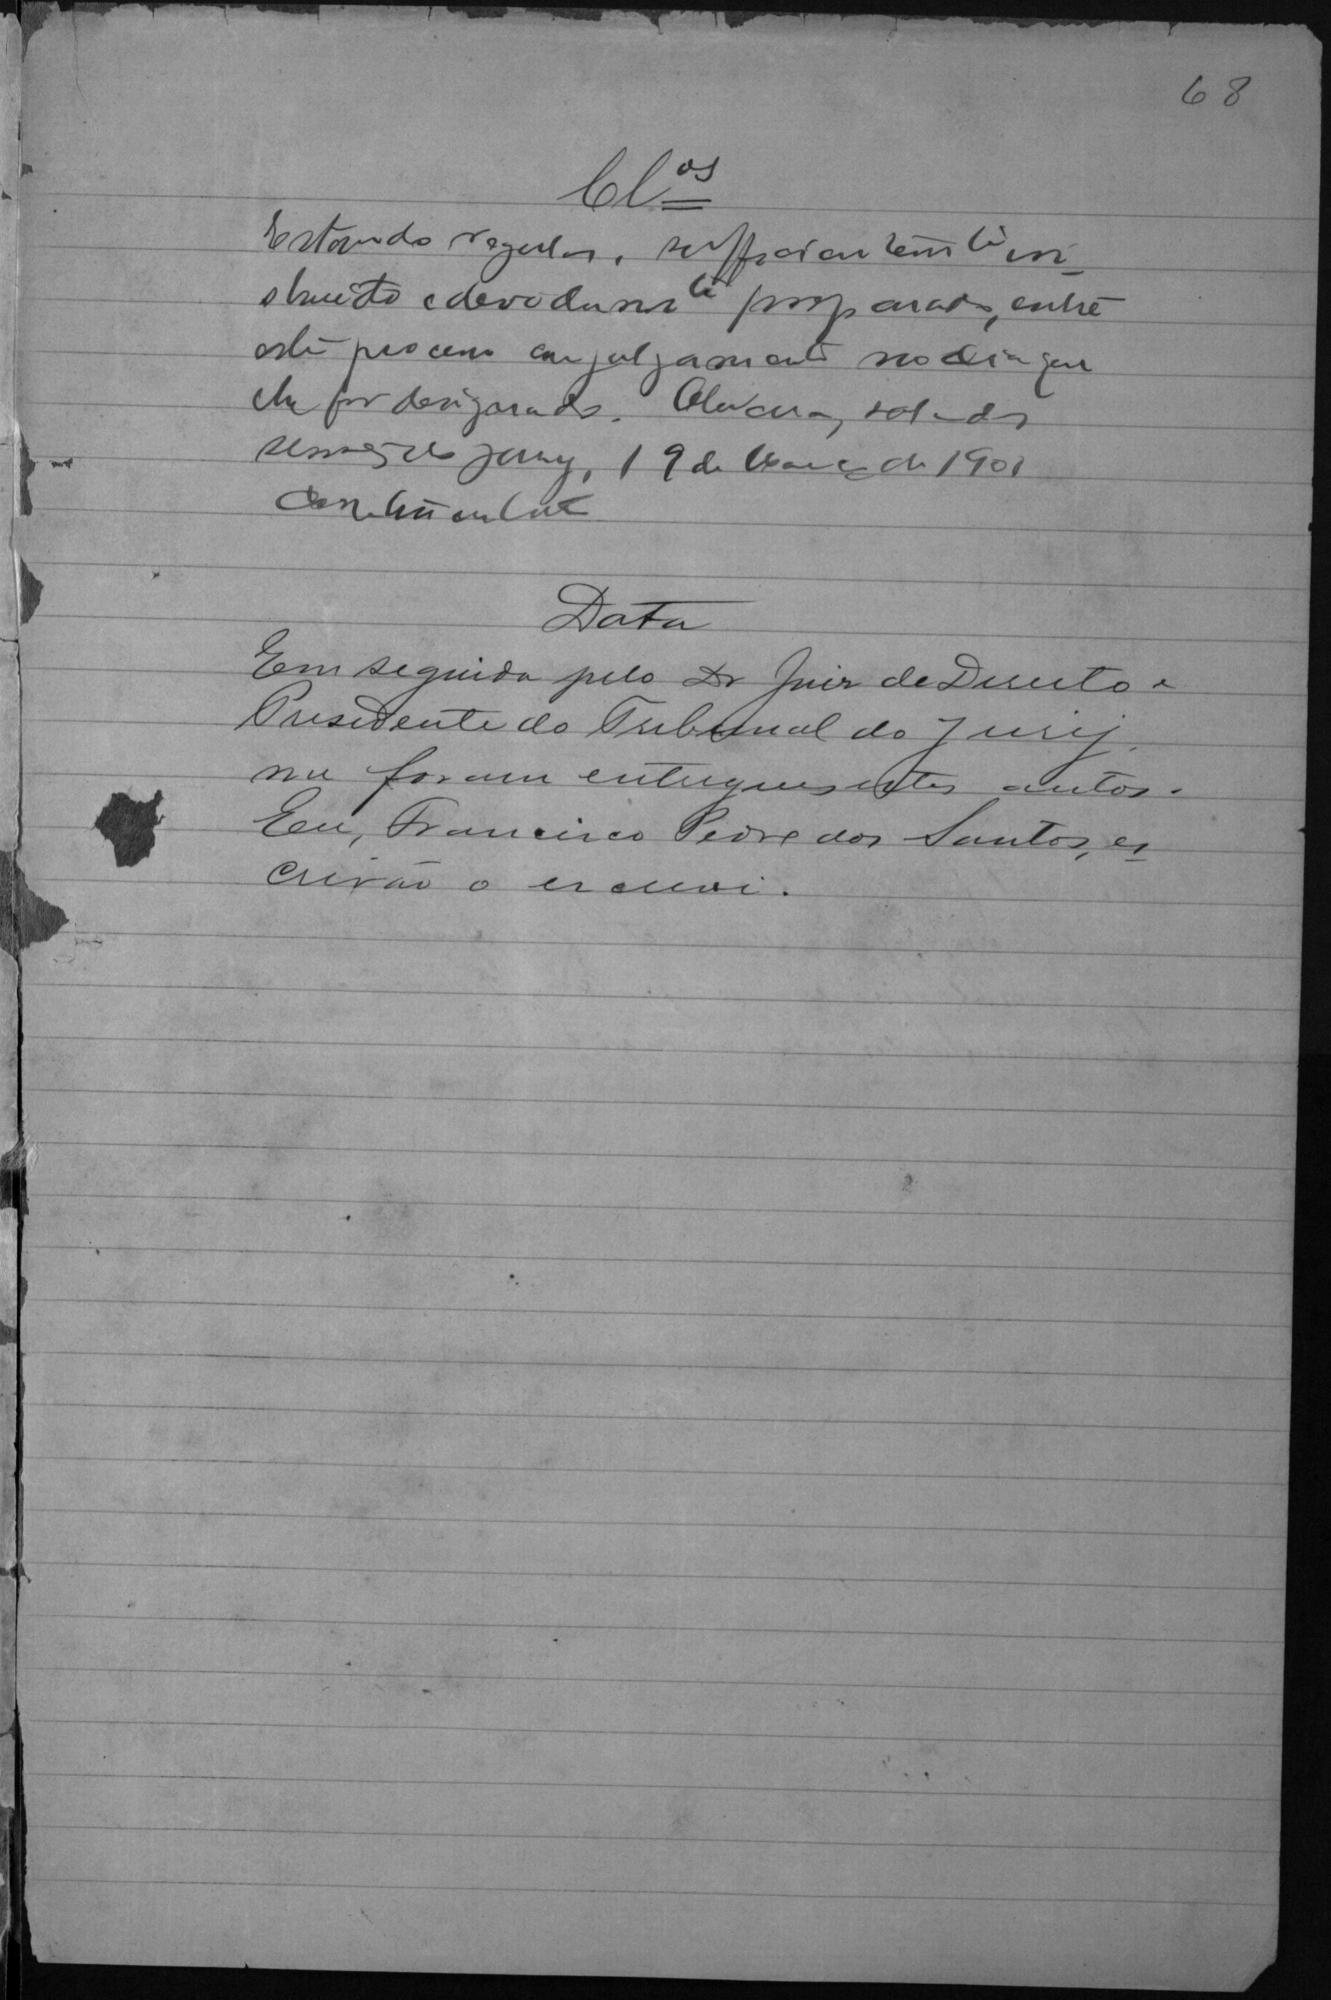 68
Cl.os
Estando regular, sufficientemte in-
struido e devidamte preparado, entre
este processo em julgamento no dia que
lhe for designado. sala das
sessões do Jury, 19 de Março de 1901
Data
Em seguida pelo Dr Juiz de Direito e
Presidente do Tribunal do Jury,
me foram entregues estes autos.
Eu, Francisco Pedro dos Santos, es
crivão o escrevi.